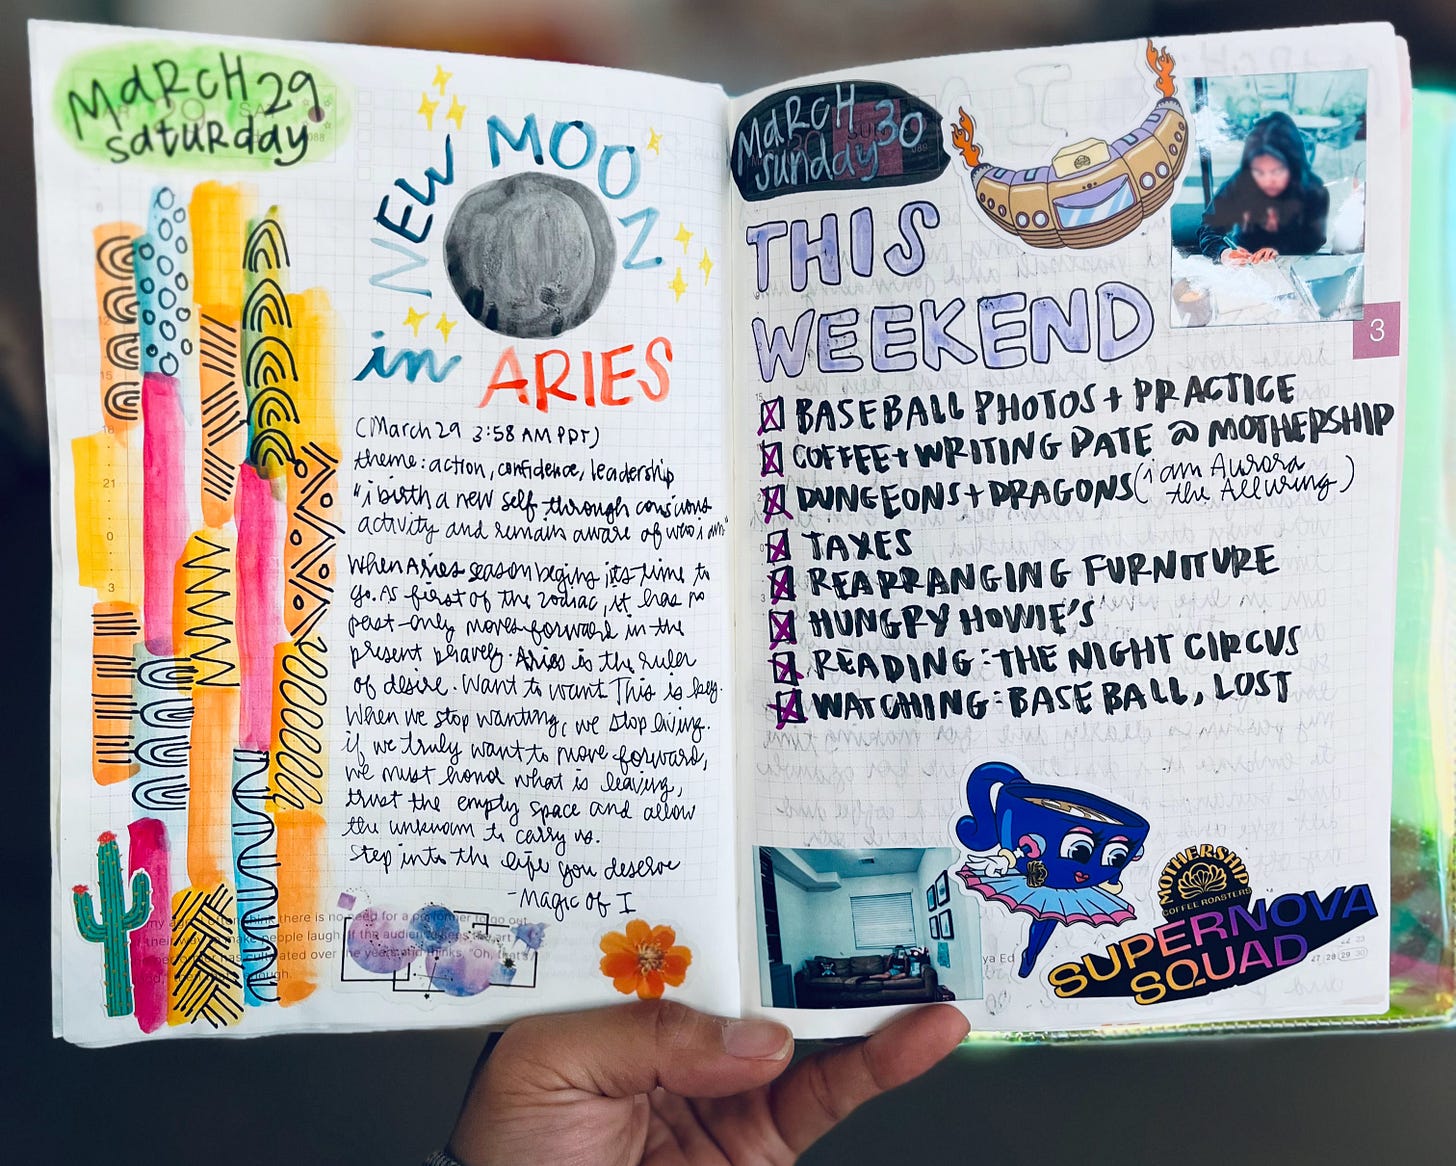 MARCH 29
saturday
NEW MOON
in ARIES
(March 29 3:58 AM PDT)
theme: action, confidence, leadership
"i birth a new self through conscious
activity and remain aware of who i am"
When Aries season begins, its time to
go. As first of the zodiac, it has no
past-only moves forward in the
present bravely. Aries is the ruler
of desire. Want to want This is key.
When we stop wanting, we stop living.
if we truly want to move forward,
we must honor what is leaving,
trust the empty space and allow
the unknown to carry us.
Step into the life you deserve
-Magic of I
MARCH 30
sunday
THIS
WEEKEND
BASEBALL PHOTOS + PRACTICE
COFFEE + WRITING DATE @ MOTHERSHIP
DUNGEONS + DRAGONS (i am Aurora
the Alluring)
TAXES
REARRANGING FURNITURE
HUNGRY HOWIE'S
READING: THE NIGHT CIRCUS
WATCHING: BASEBALL, LOST
3
MOTHERSHIP
COFFEE ROASTERS
SUPERNOVA
SQUAD
27 28 29 30